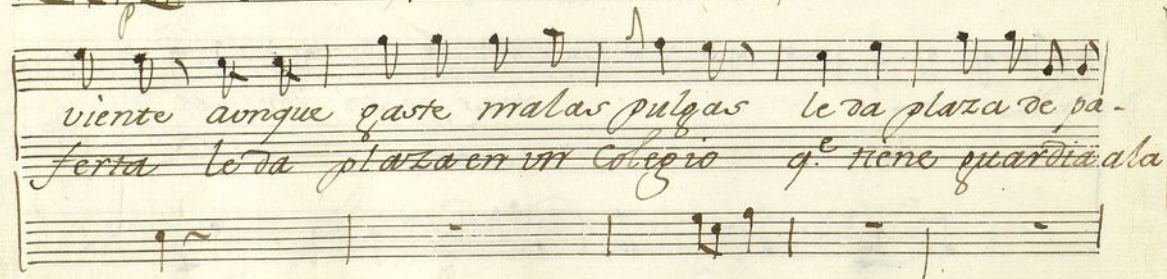 p
viente aunque gaste malas pulgas le da plaza de pa-
ferta le da plaza en un Colegio q.e tiene guardia a la